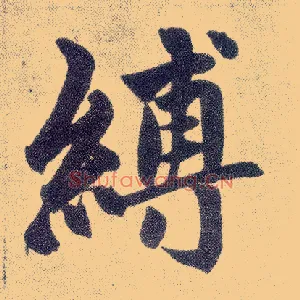 縛
Shufawang.CN